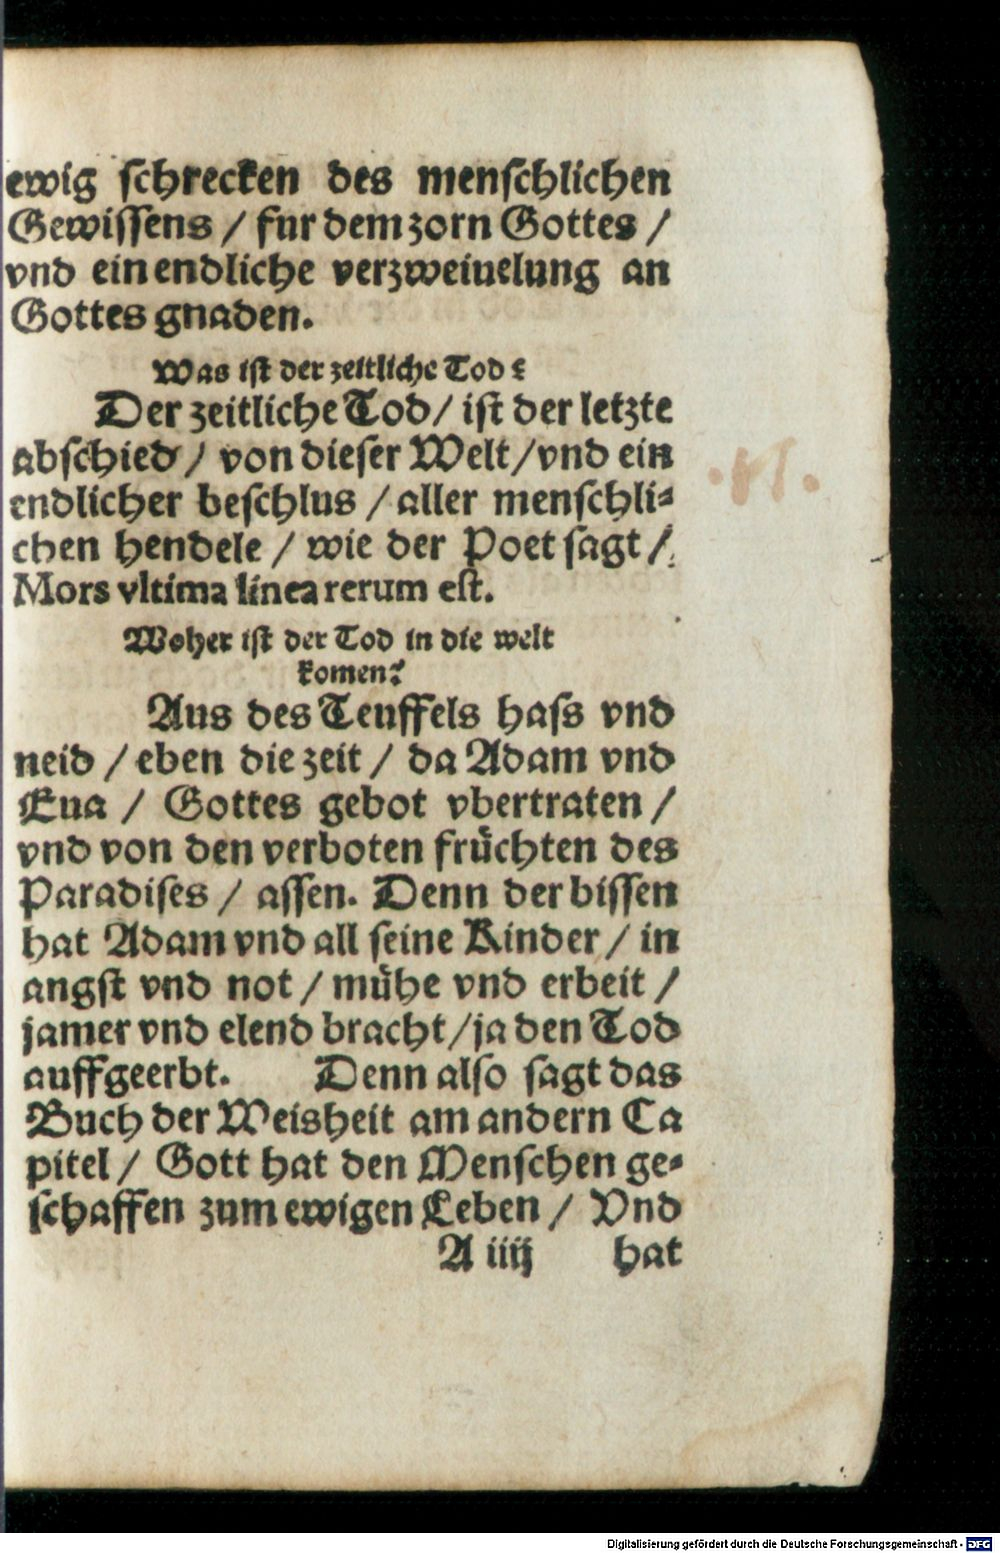 ewig schrecken des menschlichen
Gewissens / fur dem zorn Gottes /
vnd ein endliche verzweiuelung an
Gottes gnaden.
Was ist der zeitliche Tod?
Der zeitliche Tod / ist der letzte
abschied / von dieser Welt / vnd ein
endlicher beschlus / aller menschli-
chen hendele / wie der Poet sagt /
Mors vltima linea rerum est.
Woher ist der Tod in die welt
komen?
Aus des Teuffels hass vnd
neid / eben die zeit / da Adam vnd
Eua / Gottes gebot vbertraten /
vnd von den verboten früchten des
Paradises / assen. Denn der bissen
hat Adam vnd all seine Kinder / in
angst vnd not / mühe vnd erbeit /
jamer vnd elend bracht / ja den Tod
auffgeerbt. Denn also sagt das
Buch der Weisheit am andern Ca
pitel / Gott hat den Menschen ge-
schaffen zum ewigen Leben / Vnd
A iiij hat
Digitalisierung gefördert durch die Deutsche Forschungsgemeinschaft - DFG